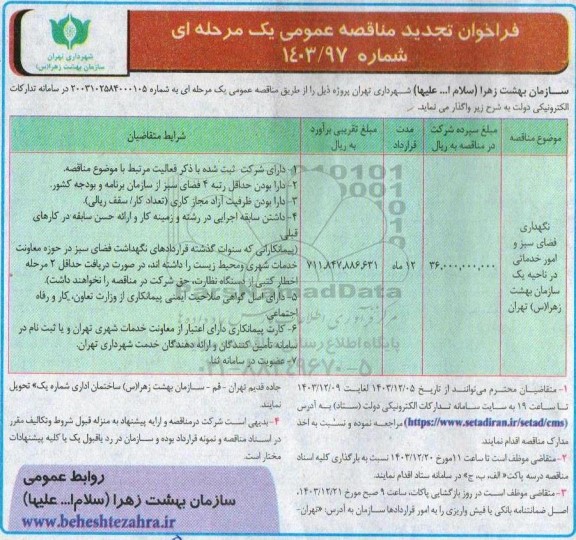 فراخوان تجدید مناقصه عمومی یک مرحله ای
شماره ۱۴۰۳/۹۷
شهرداری تهران
سازمان بهشت زهرا(س)
سازمان بهشت زهرا (سلام ا... علیها) شهرداری تهران پروژه ذیل را از طریق مناقصه عمومی یک مرحله ای به شماره ۲۰۰۳۱۰۲۵۸۴۰۰۰۱۰۵ در سامانه تدارکات
الکترونیکی دولت به شرح زیر واگذار می نماید.
موضوع مناقصه
مبلغ سپرده شرکت در مناقصه به ریال
مدت قرارداد
مبلغ تقریبی برآورد به ریال
شرایط متقاضیان
نگهداری
فضای سبز و
امور خدماتی
در ناحیه یک
سازمان بهشت
زهرا(س) تهران
۳۶,۰۰۰,۰۰۰,۰۰۰
۱۲ ماه
۷۱۱,۸۴۷,۸۸۶,۶۳۱
۱- دارای شرکت ثبت شده با ذکر فعالیت مرتبط با موضوع مناقصه.
۲- دارا بودن حداقل رتبه ۴ فضای سبز از سازمان برنامه و بودجه کشور.
۳- دارا بودن ظرفیت آزاد مجاز کاری (تعداد کار/ سقف ریالی).
۴- داشتن سابقه اجرایی در رشته و زمینه کار و ارائه حسن سابقه در کارهای
قبلی
(پیمانکارانی که سنوات گذشته قراردادهای نگهداشت فضای سبز در حوزه معاونت
خدمات شهری ومحیط زیست را داشته اند، در صورت دریافت حداقل ۲ مرحله
اخطار کتبی از دستگاه نظارت، حق شرکت در مناقصه را نخواهند داشت)
۵- دارای اصل گواهی صلاحیت ایمنی پیمانکاری از وزارت تعاون ،کار و رفاه
اجتماعی
۶- کارت پیمانکاری دارای اعتبار از معاونت خدمات شهری تهران و یا ثبت نام در
سامانه تأمین کنندگان و ارائه دهندگان خدمت شهرداری تهران.
۷- عضویت در سامانه ثنا.
۱- متقاضیان محترم می‌توانند از تاریخ ۱۴۰۳/۱۲/۰۵ لغایت ۱۴۰۳/۱۲/۰۹
تا ساعت ۱۹ به سایت سامانه تدارکات الکترونیکی دولت (ستاد) به آدرس
(https://www.setadiran.ir/setad/cms) مراجعه نموده و نسبت به اخذ
مدارک مناقصه اقدام نمایند.
۲- متقاضی موظف است تا ساعت ۱۱مورخ ۱۴۰۳/۱۲/۲۰ نسبت به بارگذاری کلیه اسناد
مناقصه درسه پاکت« الف، ب، ج» در سامانه ستاد اقدام نمایند.
۳- متقاضی موظف است در روز بازگشایی پاکات، ساعت ۹ صبح مورخ ۱۴۰۳/۱۲/۲۱،
اصل ضمانتنامه بانکی یا فیش واریزی را به امور قراردادها سازمان به آدرس: «تهران-
جاده قدیم تهران - قم - سازمان بهشت زهرا(س) ساختمان اداری شماره یک» تحویل
نمایند.
۴- بدیهی است شرکت درمناقصه و ارایه پیشنهاد به منزله قبول شروط وتکالیف مقرر
در اسناد مناقصه و نمونه قرارداد بوده و سازمان در رد یاقبول یک یا کلیه پیشنهادات
مختار است.
روابط عمومی
سازمان بهشت زهرا (سلام‌ا... علیها)
www.beheshtezahra.ir